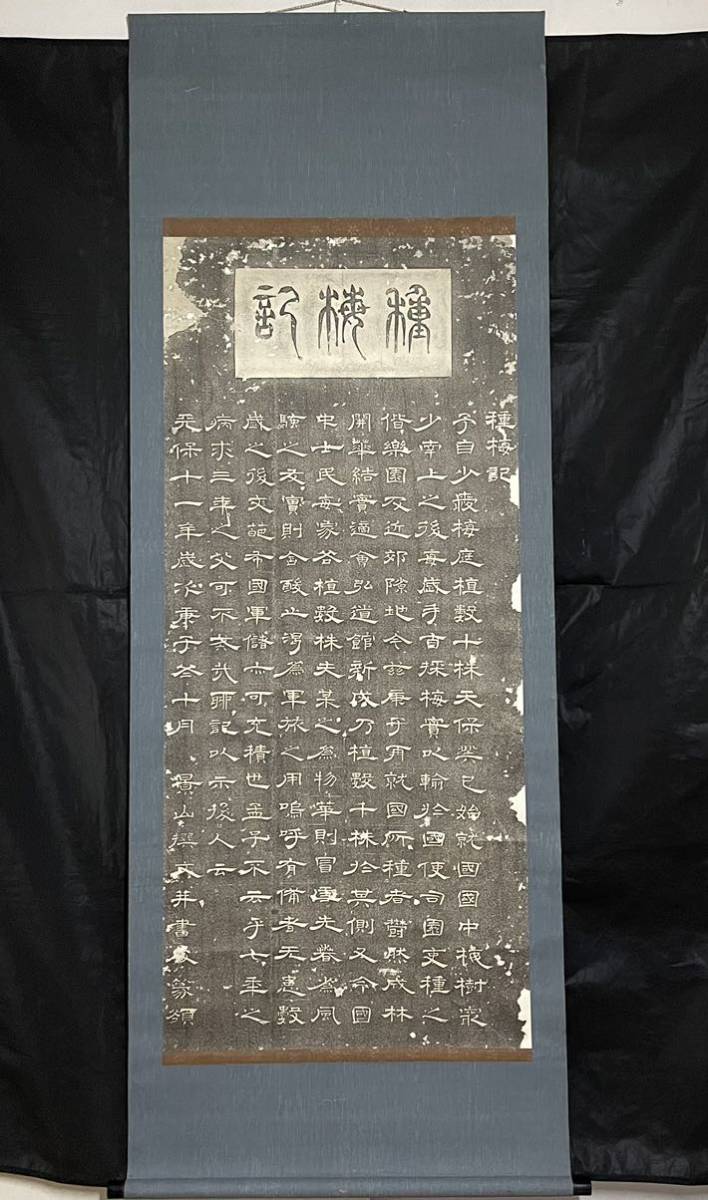 種梅記
種梅記
予自少愛梅庭植數十株天保癸巳始就國國中梅樹最
少南上之後毎歲手自採梅實以輸於國使司園吏種之
偕樂園及近郊隙地今茲庚子再就國所種者鬱然成林
開華結實適會弘道館新成乃植數千株於其側又令國
中士民毎家各植數株夫某之為物華則冒雪先春為風
騷之友實則含酸止渴為軍旅之用嗚呼有備者无患數
歲之後文葩布國軍儲亦可充積也孟子不云乎七年之
病求三年之艾可不戒哉聊記以示後人云
天保十一年歲次庚子冬十月 景山撰文并書及篆額